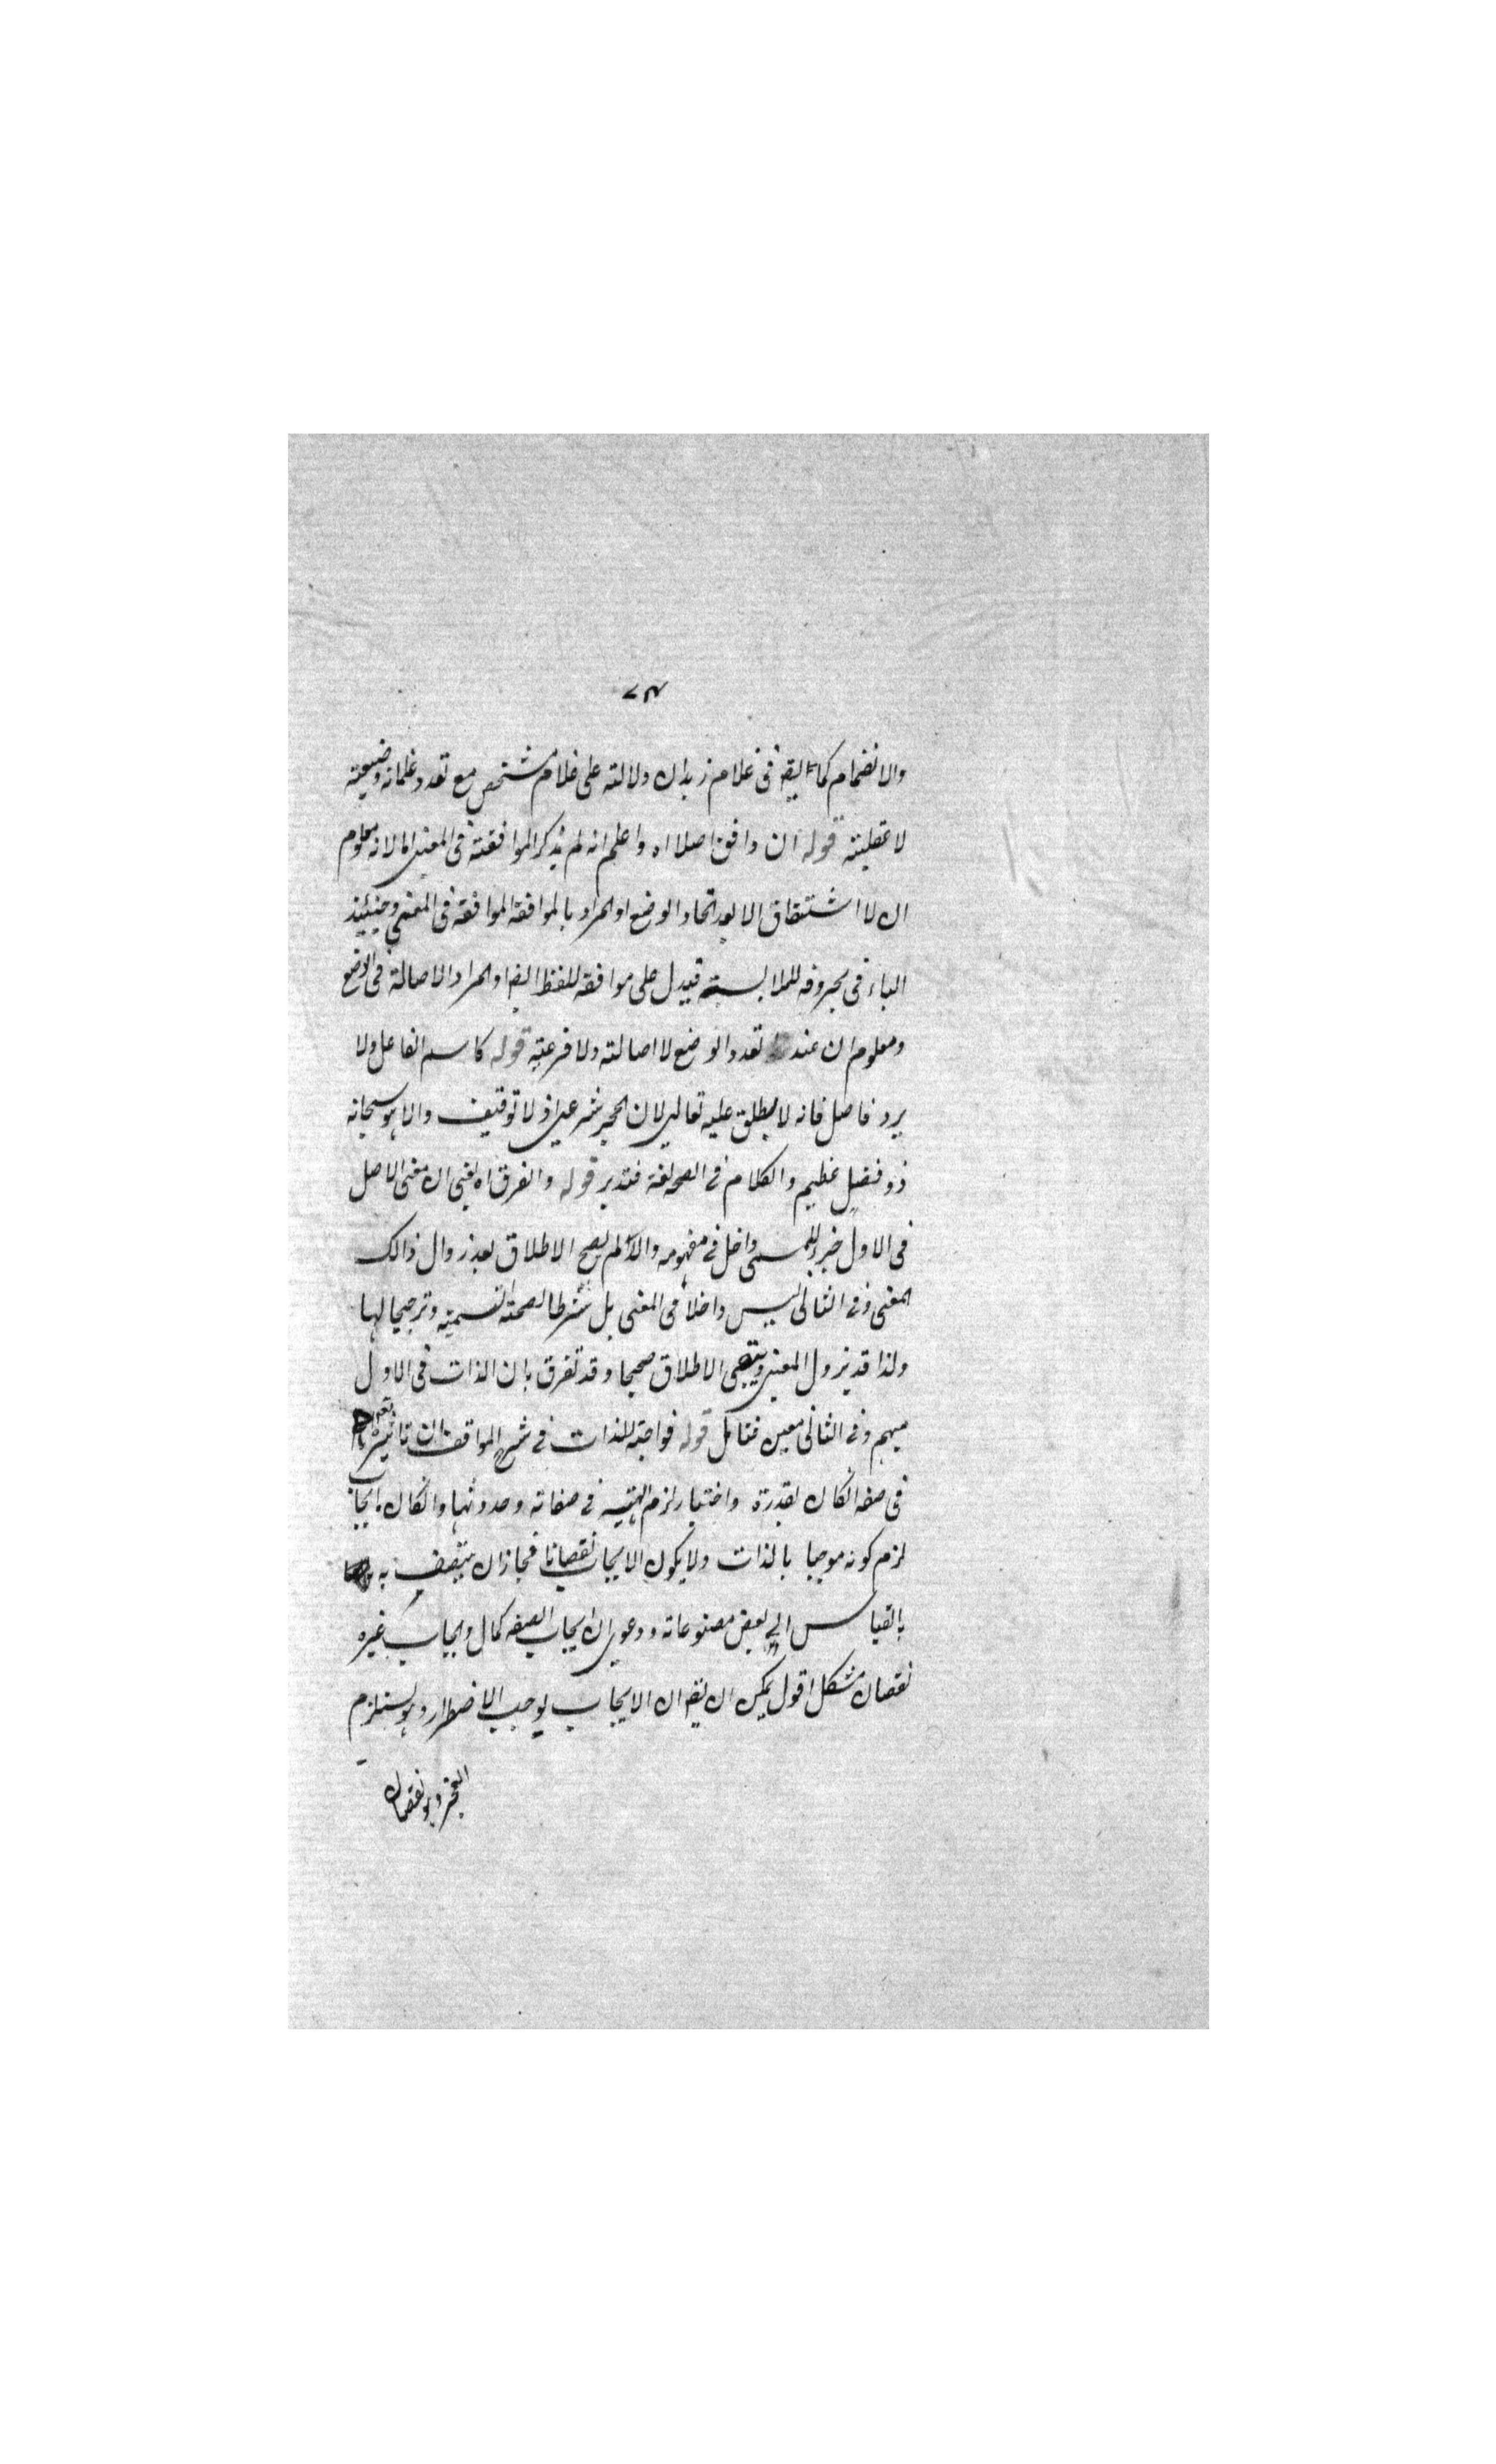 ٧٣
والانضمام كما يقه فى غلام زيد ان دلالته على غلام مشخص مع تعدد غلمانه وضعية
لا عقلية قوله ان وافق اصلا اه واعلم انه لم يذكر الموافقة فى المعنى اما لانه معلوم
ان لا اشتقاق الا بعد اتحاد الوضع او المراد بالموافقة الموافقة فى المعنى وحينئذ
الباء فى بحروفه للملابسة فيدل على موافقه للفظ ايضا او المراد الاصالة فى الوضع
ومعلوم ان عند تعدد الوضع لا اصالة ولا فرعية قوله كاسم الفاعل ولا
يرد فاضل فانه لا يطلق عليه تعالى لان الحجر شرعى اذ لا توقيف والا هو سبحانه
ذو فضل عظيم والكلام فى الصحة لغة فتدبر قوله والفرق اه يعنى ان معنى الاصل
فى الاول جزء للمسمى داخل فى مفهومه والا لم يصح الاطلاق بعد زوال ذالك
المعنى وفى الثانى ليس داخلا فى المعنى بل شرطا لصحة التسمية وترجيحا لها
ولذا قد يزول المعنى ويبقى الاطلاق صحيحا وقد تفرق بان الذات فى الاول
مبهم وفى الثانى معين فتامل قوله فواجبة للذات فى شرح المواقف ان تاثيره تعه
فى صفه انكان بقدرة واختيار لزم التسـ فى صفاته وحدوثها وانكان بايجاب
لزم كونه موجبا بالذات ولا يكون الايجاب نقصانا فجاز ان يتصف به
بالقياس الى بعض مصنوعاته ودعوى ان ايجاب الصفه كمال وايجاب غيره
نقصان مشكل اقول يمكن ان يقه ان الايجاب يوجب الاضطرار وهو يستلزم
العجز وهو نقصان